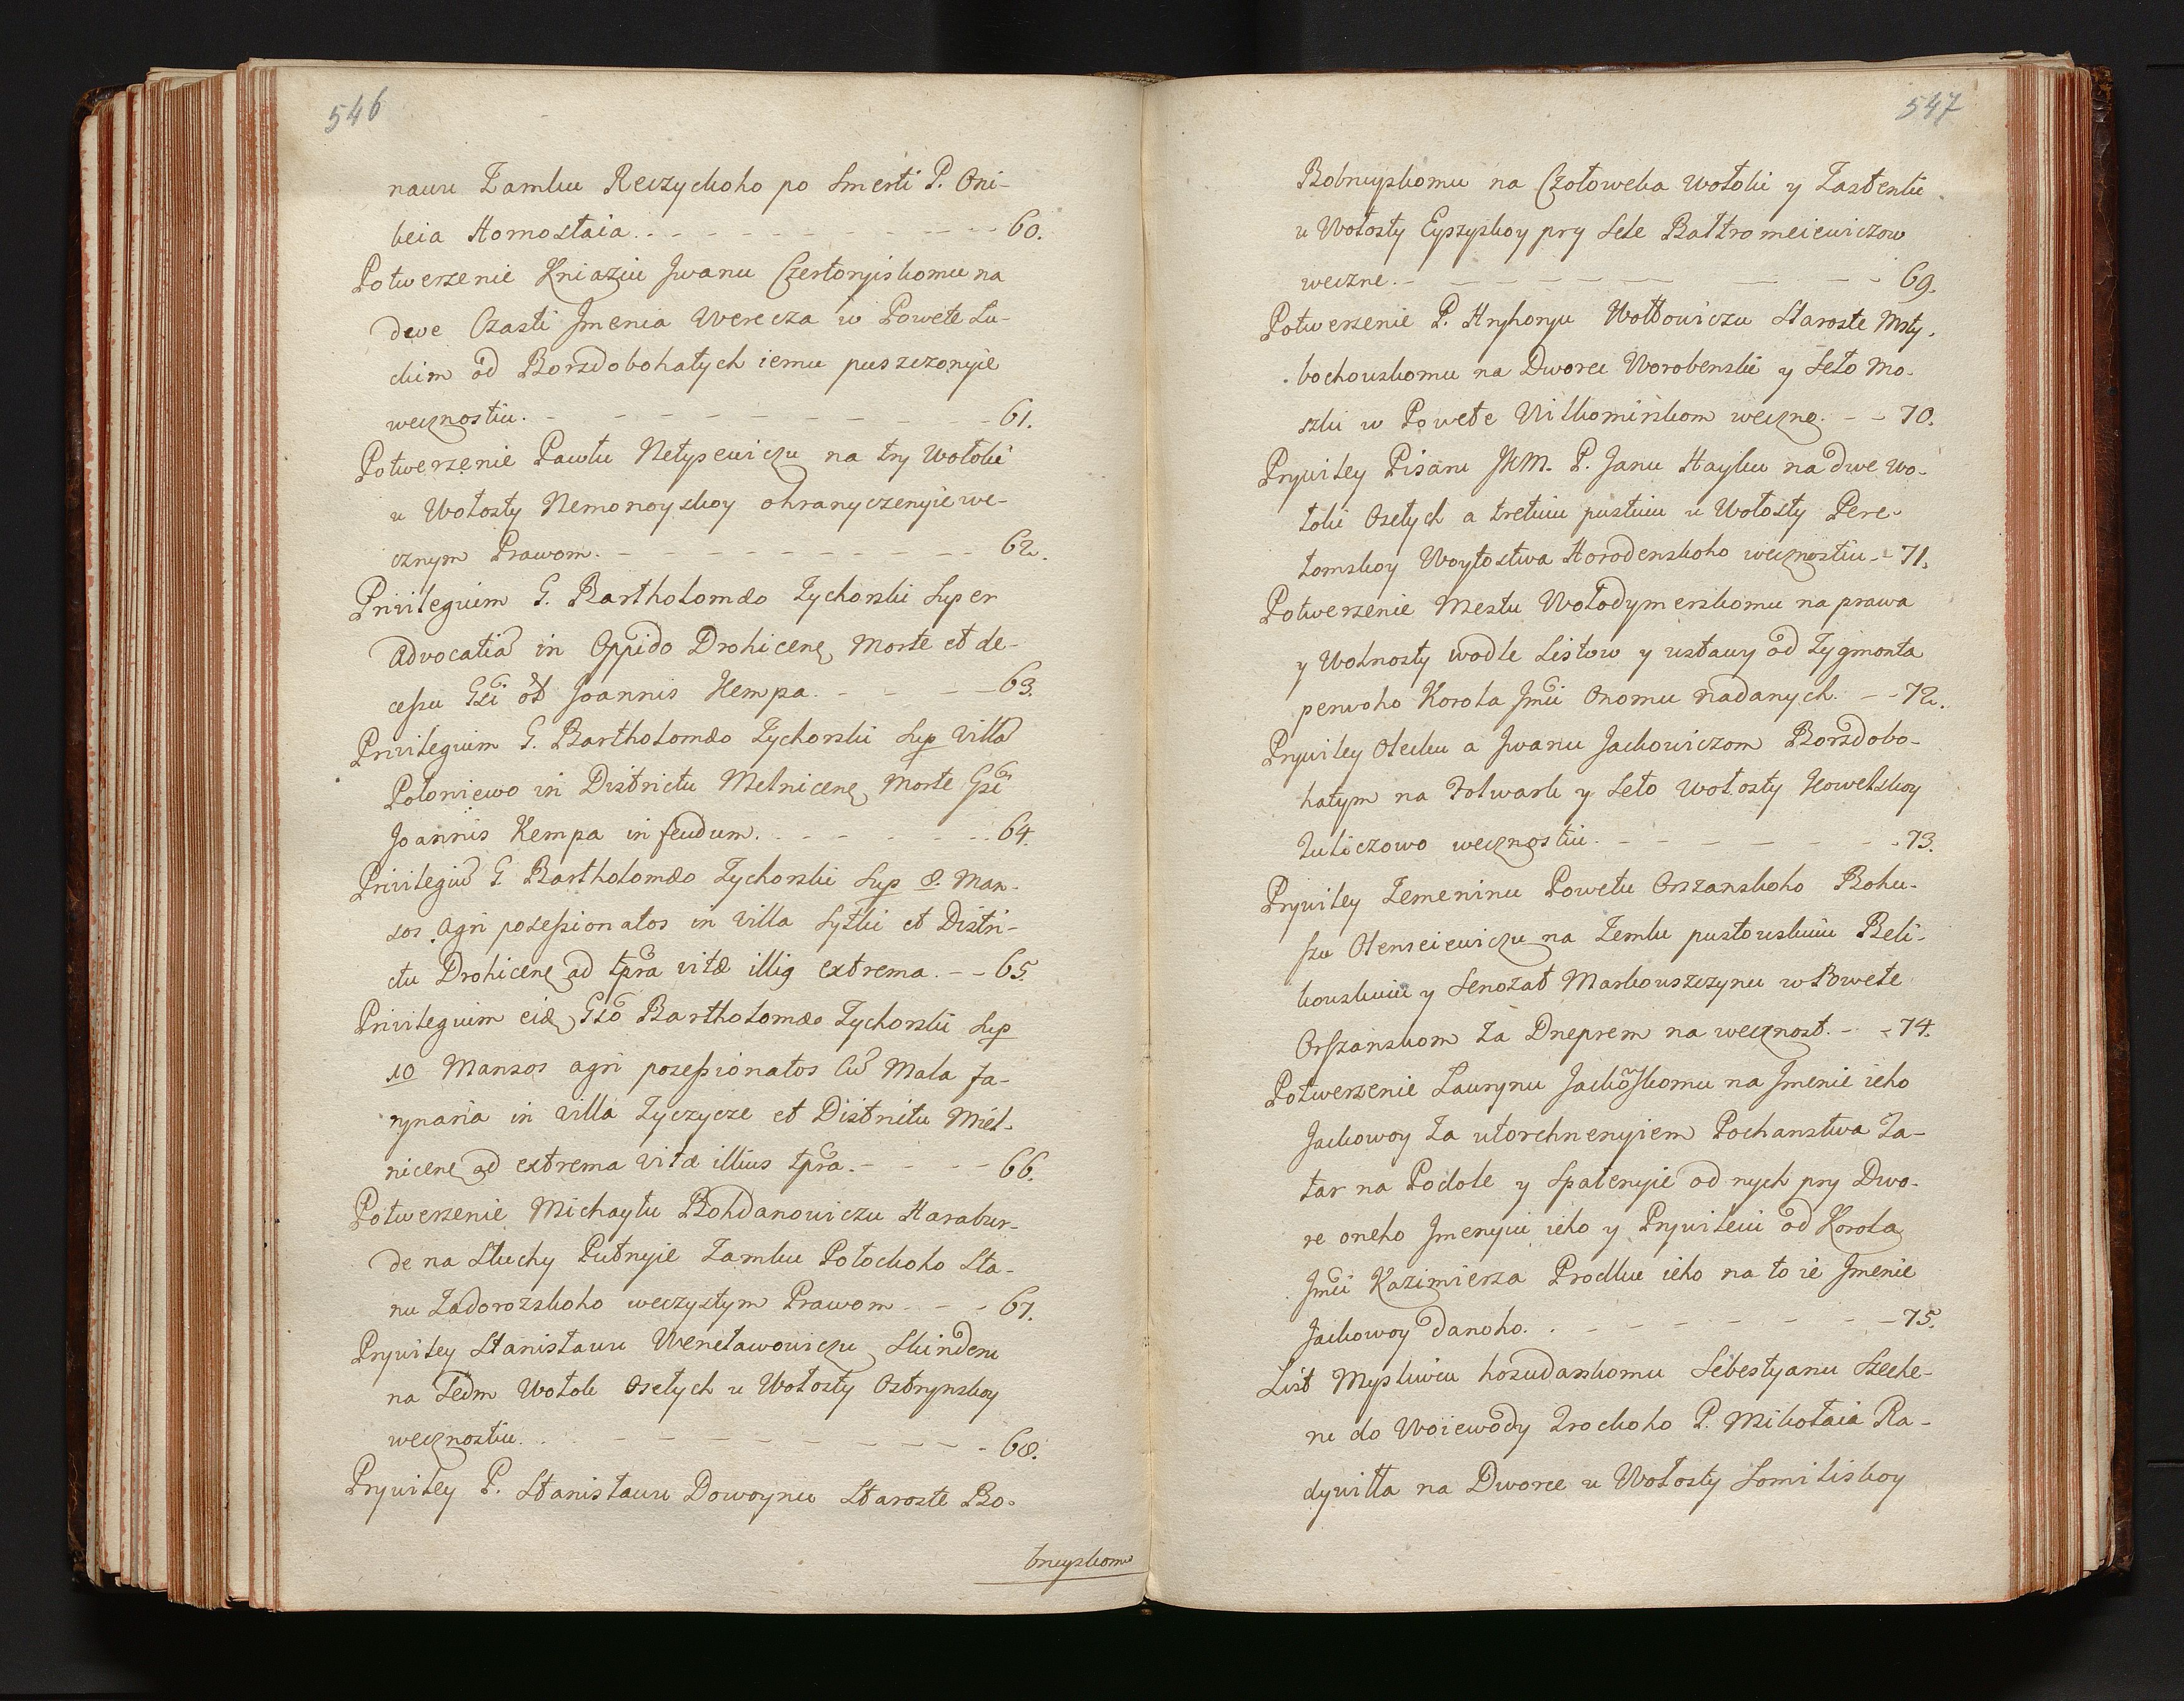 546
nauu Zamku Reczyckoho po Smerti P. Oni-
keia Hornostaia. - - - - - - - - - - - 60.
Potwerzenie Kniaziu Jwanu Czertoryiskomu na
dwe Czasti Jmenia Werecza w Powete Lu-
ckim od Borzdobohatych iemu puszczonyie
wecznostiu. - - - - - - - - - - 61.
Potwerzenie Pawłu Netysewiczu na try Wołoki
u Wołosty Nemonoyskoy ohranyczenyie we-
cznym Prawom. - - - - - - - - - - 62.
Privilegium G. Bartholomæo Zychorski Super
Advocatia in Oppido Drohicen, Morte et de-
cessu Gsi ol Joannis Kempa. - - - - - 63.
Privilegium G. Bartholomæo Zychorski Sup Villa
Poloniewo in Districtu Melnicen, Morte Gsi
Joannis Kempa in feudum. - - - - - - 64.
Privilegiu G. Bartholomæo Zychorski Sup 8. Man-
sos Agri possessionatos in Villa Sytki et Distri-
ctu Drohicen, ad tpra vitæ illig extrema. - - 65.
Privilegium eid, Gso Bartholomæo Zychorski Sup
10 Mansos agri possessionatos Cu Mala fa-
rynaria in Villa Zyczycze et Districtu Miel-
nicen, ad extrema Vitæ illius tpra. - - - - 66.
Potwerzenie Michayłu Bohdanowiczu Harabur-
de na Słuchy Putnyie Zamku Połockoho Sta-
nu Zadorozskoho weczystym Prawom - - - 67.
Prywiley Stanisławu Wenclawowiczu Skinderu
na Sedm Wołok Osełych u Wołosty Ostrynskoy
wecznostiu. - - - - - - - - - - 68.
Prywiley P. Stanisławu Dowoynu Staroste Bo-
bruyskomu
547
Bobruyskomu na Czołoweka Wołoki y Zastenki
u Wołosty Eyszyskoy pry Sele Baltromeiewiczow
weczne. - - - - - - - - - - 69.
Potwerzenie P. Hryhoryu Wołłowiczu Staroste Msty-
bochowskomu na Dworec Worobenski y Seło Mo-
szki w Powete Wilkomirskom weczno. - - 70.
Prywiley Pisaru JKM. P. Janu Hayku na dwe Wo-
łoki Osełych a tretuiu pustuiu u Wołosty Pere-
łomskoy Woytostwa Horodenskoho wecznostiu. - 71.
Potwerzenie Mestu Wołodymerskomu na prawa
y Wolnosty wodle Listow y ustawy od Zygmonta
perwoho Korola Jmći Onomu nadanych. - - 72.
Prywiley Olechu a Jwanu Jackowiczom Borzdobo-
hatym na Folwark y Seło Wołosty Kowelskoy
Zuliczowo wecznostiu. - - - - - - - - 73.
Prywiley Zemeninu Powetu Orszanskoho Bohu-
szu Olenseiewiczu na Zemlu pustowskuiu Beli-
kowskuiu y Senozat Markowszczynu w Powete
Orszanskom Za Dneprem na wecznost. - - 74.
Potwerzenie Laurynu Jackowskomu na Jmenie ieho
Jackowoy Za utorchnenyiem Pochanstwa Ta-
tar na Podole y Spalenyie od nych pry Dwo-
re oneho Jmenyiu ieho y Prywileiu od Korola
Jmći Kazimierza Prodku ieho na to ie Jmenie
Jackowoy danoho. - - - - - - - - - 75.
List Mysliwcu hosudarskomu Sebestyanu Szeche-
ni do Woiewody Trockoho P. Mikołaia Ra-
dywiłła na Dworce u Wołosty Somiliskoy